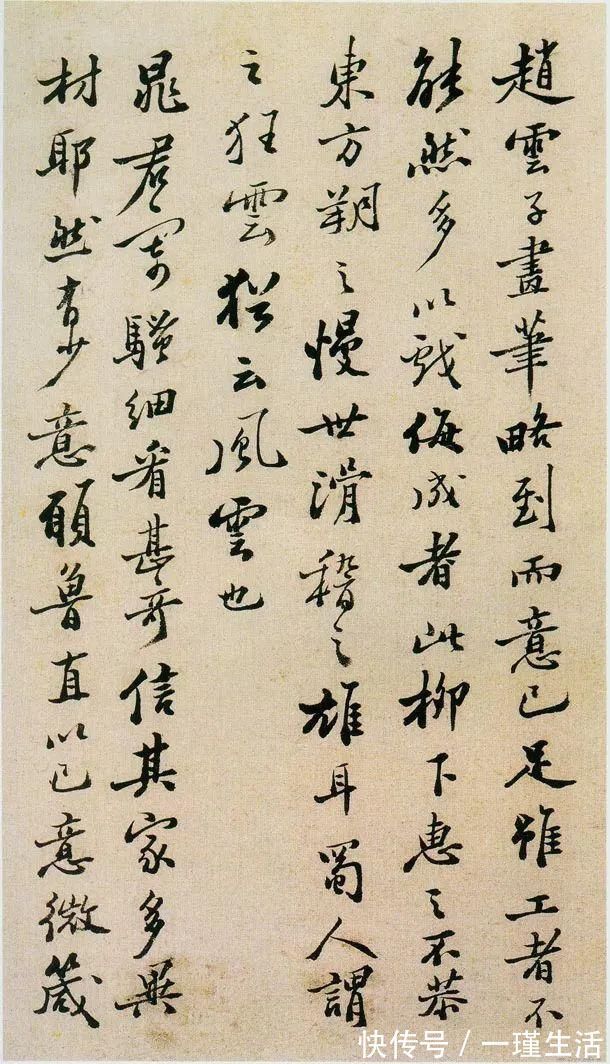 趙雲子畫筆略到而意已足雖工者不
能然多以戲侮成者此柳下惠之不恭
東方朔之慢世滑稽之雄耳蜀人謂
之狂雲猶云風雲也
晁君寄騷細看甚奇信其家多異
材耶然有少意願魯直以己意微箴
快传号/一瑾生活